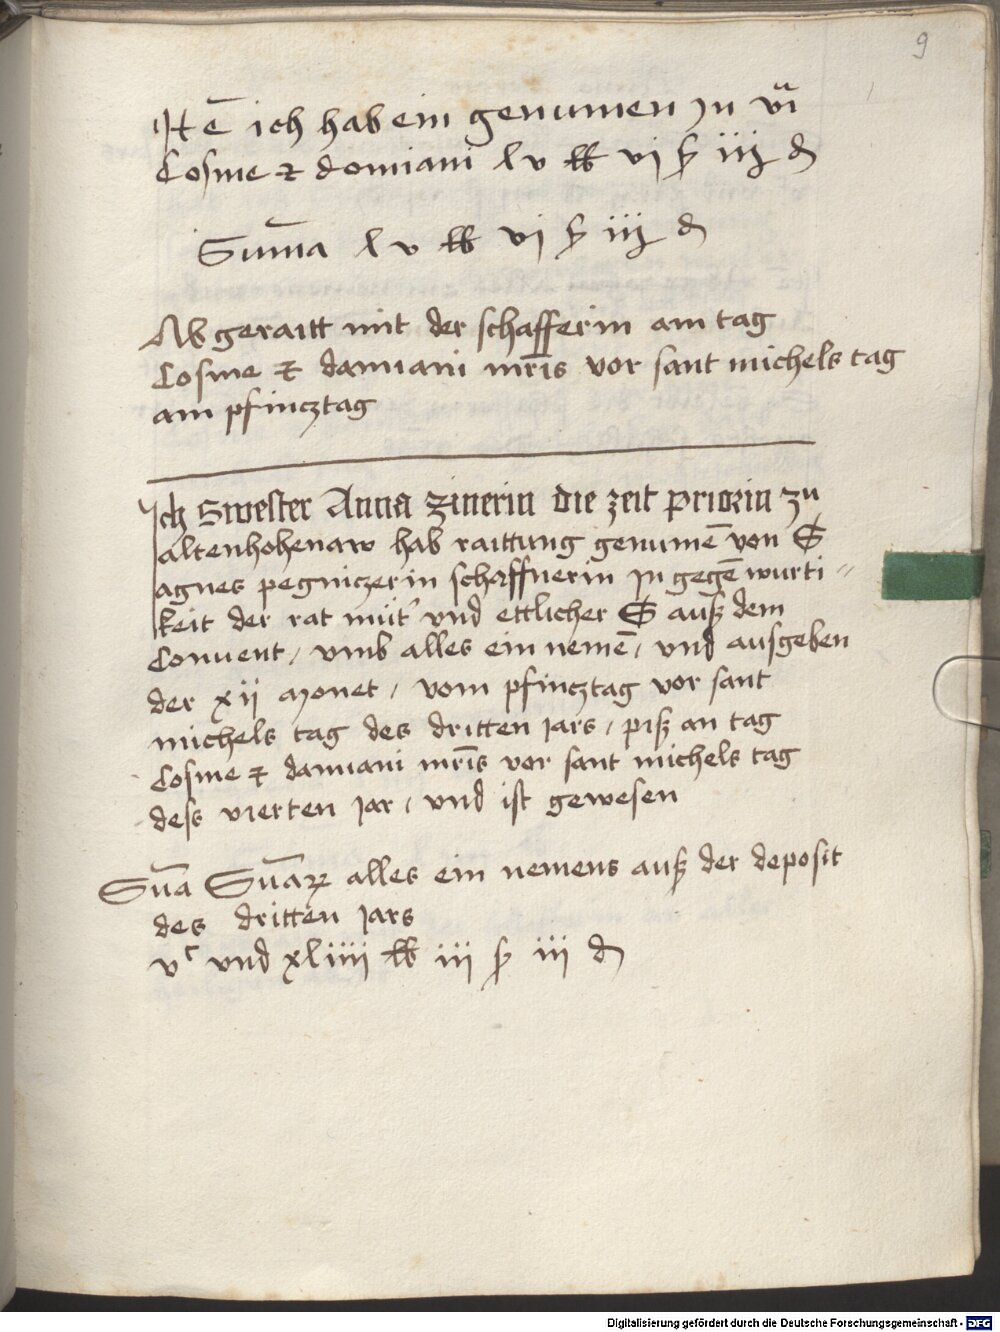 9
Itē ich hab ein genumen zu vñ
Cosme et domiani lv lb vj ß iij d
Sum̄a lv lb vj ß iij d
Ab geraitt mit der schafferin am tag
Cosme et damiani mr̄is vor sant michels tag
am pfincztag
Ich Swester Anna zinerin die zeit priorin zu
altenhohenaw hab raittung genumē von S
agnes pegniczerin schaffnerin in gegē wurti=
keit der rat mût' vnd ettlicher S auß dem
Conuent / vmb alles ein nemē / vnd ausgeben
der xij monet / vom pfincztag vor sant
michels tag des dritten jars / piß an tag
Cosme et damiani mr̄is vor sant michels tag
dess vierten jar / vnd ist gewesen
Sum̄a Sum̄aꝝ alles ein nemens auß der deposit
des dritten jars
vᶜ vnd xliiii lb iii ß iii d
Digitalisierung gefördert durch die Deutsche Forschungsgemeinschaft - DFG